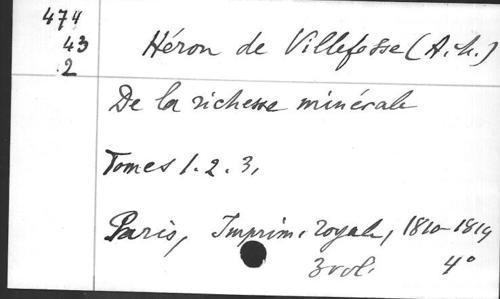 474
43
2
Héron de Villefosse (A. h.)
De la richesse minérale
Tomes 1. 2. 3.
Paris, Imprim. royale, 1810-1819
3 vol. 4°